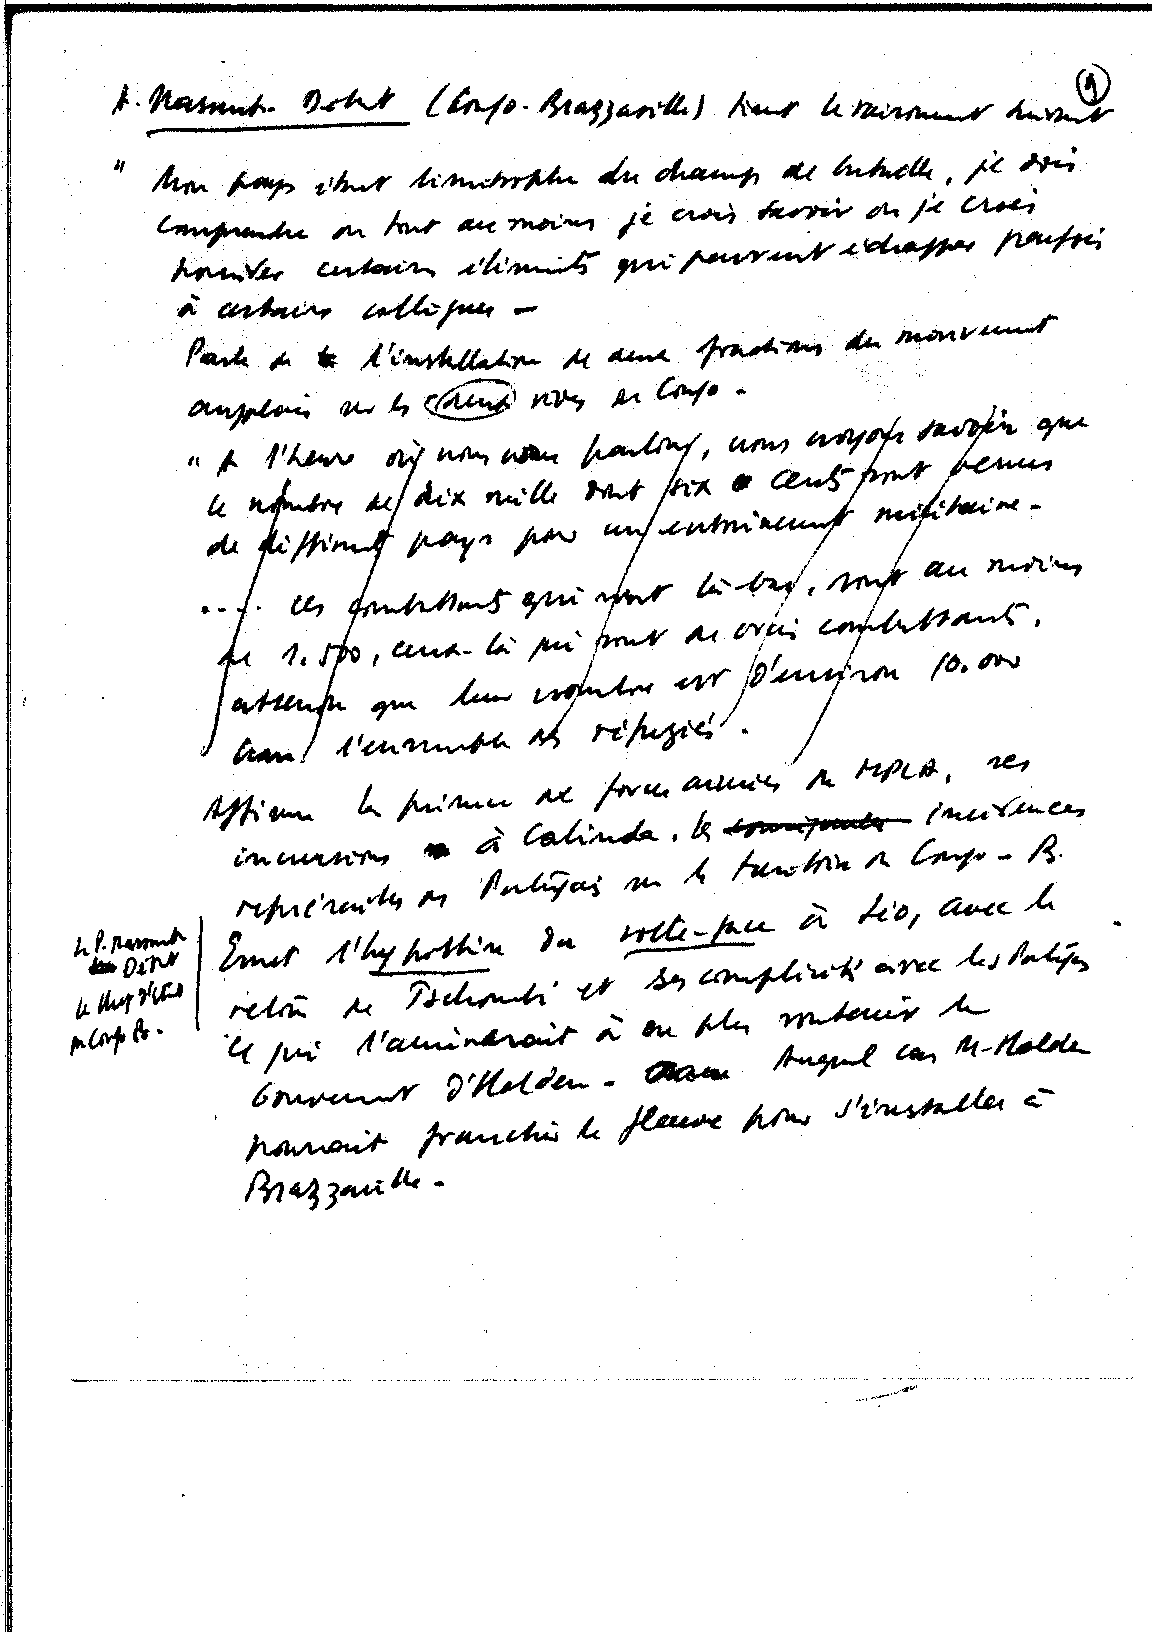 9
A. Massamba Débat (Congo-Brazzaville) tient le raisonnement suivant
" Mon pays étant limitrophe du champs de bataille, je dois
comprendre ou tout au moins je crois savoir ou je crois
trouver certains éléments qui peuvent échapper parfois
à certains collègues -
Parle de l'installation de deux fractions du mouvement
angolais sur les deux rives du Congo.
" A l'heure où nous nous parlons, nous croyons savoir que
le nombre de dix mille dont six cents sont venus
de différents pays pour un entraînement militaire -
.... Les combattants qui sont là-bas, sont au moins
de 1.500, ceux-là qui sont de vrais combattants,
attendu que leur nombre est d'environ 10.000
dans l'ensemble des réfugiés.
Affirme la présence de forces armées du MPLA, ses
incursions à Cabinda, les incidences
représailles des Portugais sur le territoire du Congo-B.
Emet l'hypothèse du volte-face à Léo, avec le
retour de Tschombé et ses complicités avec les Portugais
ce qui l'amènerait à ne plus soutenir le
Gouvernement d'Holden - Auquel cas M. Holden
pourrait franchir le fleuve pour s'installer à
Brazzaville -
Le P. Massamba
Débat
Le Chef d'Etat
du Congo Br.